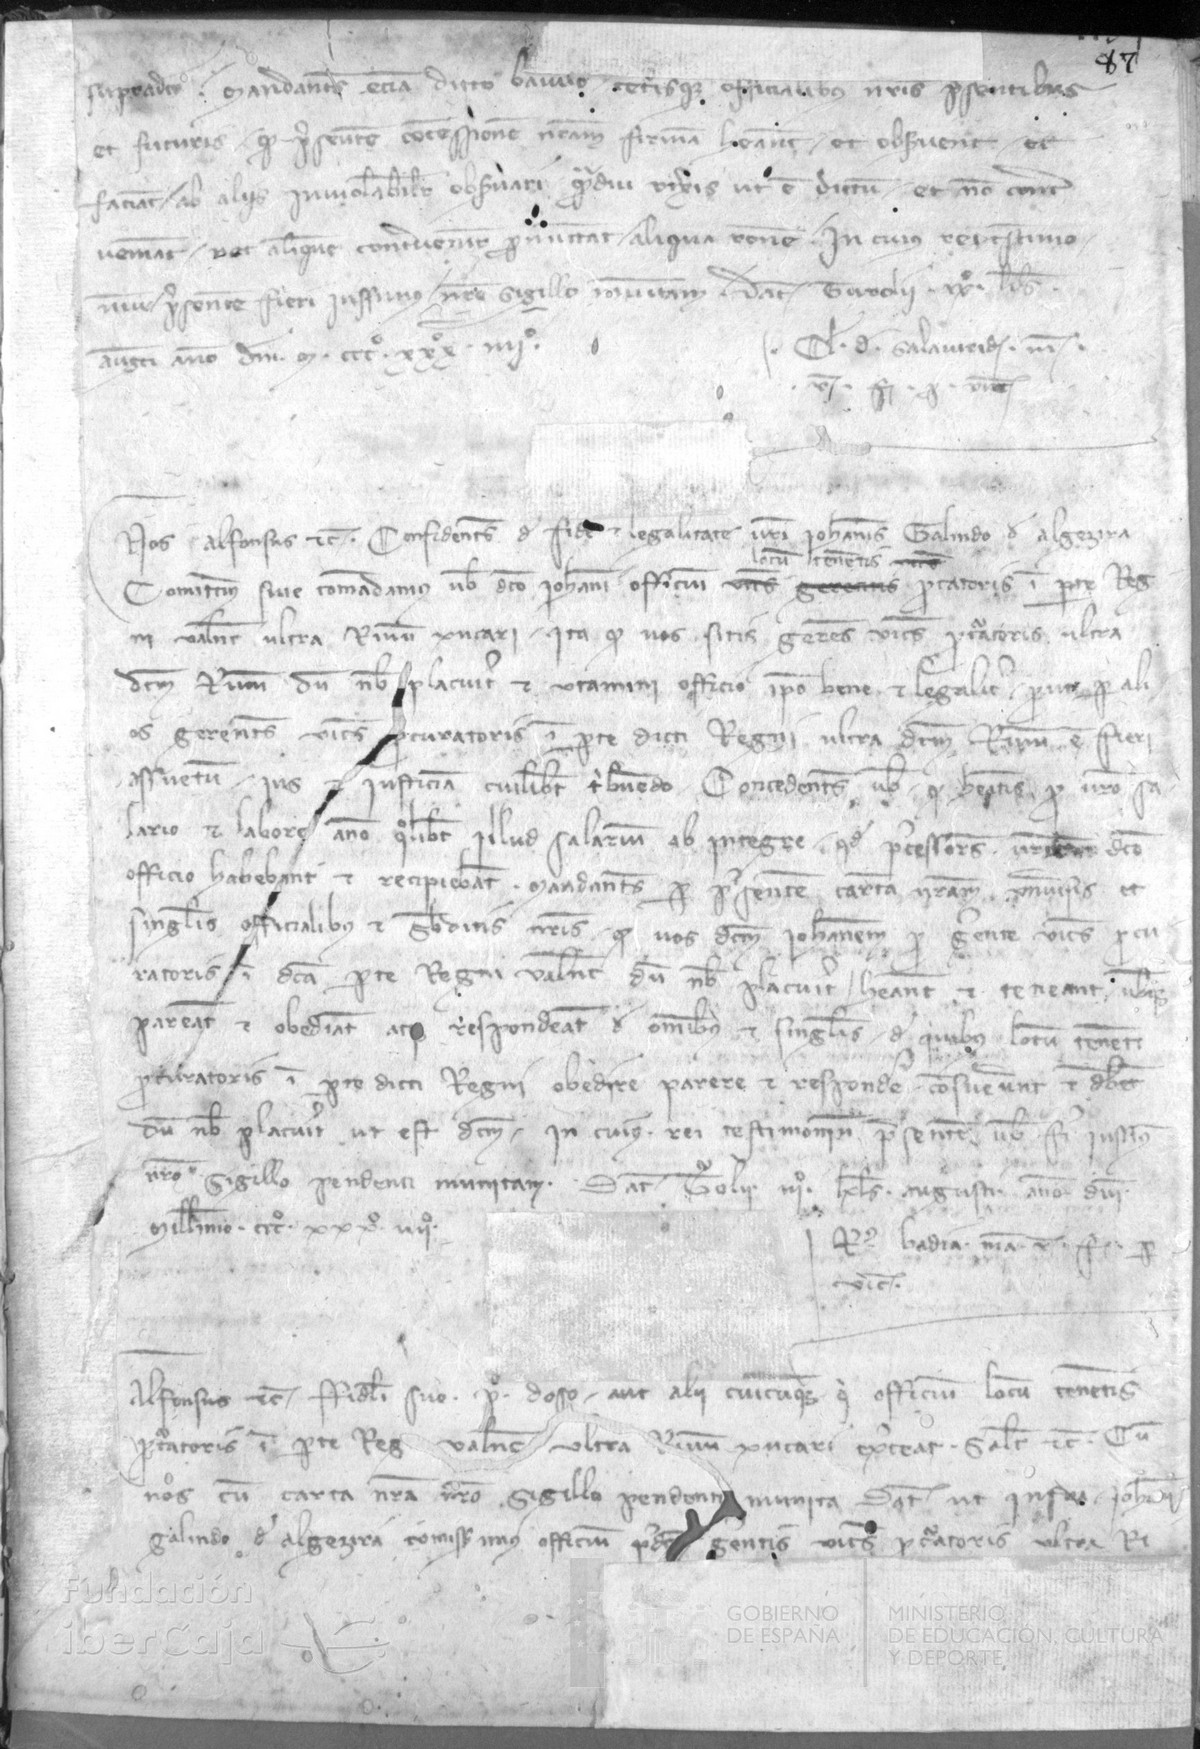 87
mandantes etiam dicto baiulo ceterisque officialibus nris psentibus
et futuris q psente concessione nram firma heant et observent et
faciant ab aliis inviolabilr observari ut e dictum et no cont
veniant nec aliquem contravenire pmittat aliqua rone In cuius rei testimo
nium psente fieri iussimus nro sigillo munitam Dat
augti anno dni m ccc xxx iiii
Nos Alfonsus etc Confidentes d fide et legalitate vri Johannis Galindo d algezira
locum tenentis
Comittim sive comendamus vob dco Johani officium vices gerentis pcuratoris i pte Reg
ni valnc ultra Rivum xucari ita q vos sitis gerens vices pcuratoris ultra
dcm Rivum du nob placuit et utamini officio ipo bene et legalit put p ali
os gerentes vices pcuratoris i pte dicti Regni ultra dcm Rivum e fieri
assuetum ius et iusticia cuilibet tribuendo Concedentes vob q heatis p vro sa
lario et labore anno qolibet illud salarium ab integre qd pcessores vri dco
officio habebant et recipiebat mandantes p psentem carta nram universis et
singlis officialibus et subditis nris q vos dcm Johanem p gerente vices pcu
ratoris i dca pte Regni valnc du nob placuit heant et teneant vobisq
pareat et obediat atq respondeat d omibus et singlis d quibus locum tenenti
pcuratoris i pte dicti Regni obedire parere et responde consueverunt et debet
du nob placuit ut est dcm In cuius rei testimonium psente vob fi iussim
nro sigillo pendenti munitam Dat augusti anno dni
millimo ccc xxx iiii
Alfonsus etc ffideli suo po doso aut alii cuicumq qi officium locum tenentis
pcuratoris i pte Reg valnc ultra Rivum xucari exerceat Salt etc Cu
nos cu carta nra nro sigillo pendenti munita Dat ut infra Johani
galindo d algezira comisimus officium pdcm gerentis vices pcuratoris ultra Ri
Fundación
iberCaja
GOBIERNO
DE ESPAÑA
MINISTERIO
DE EDUCACIÓN, CULTURA
Y DEPORTE